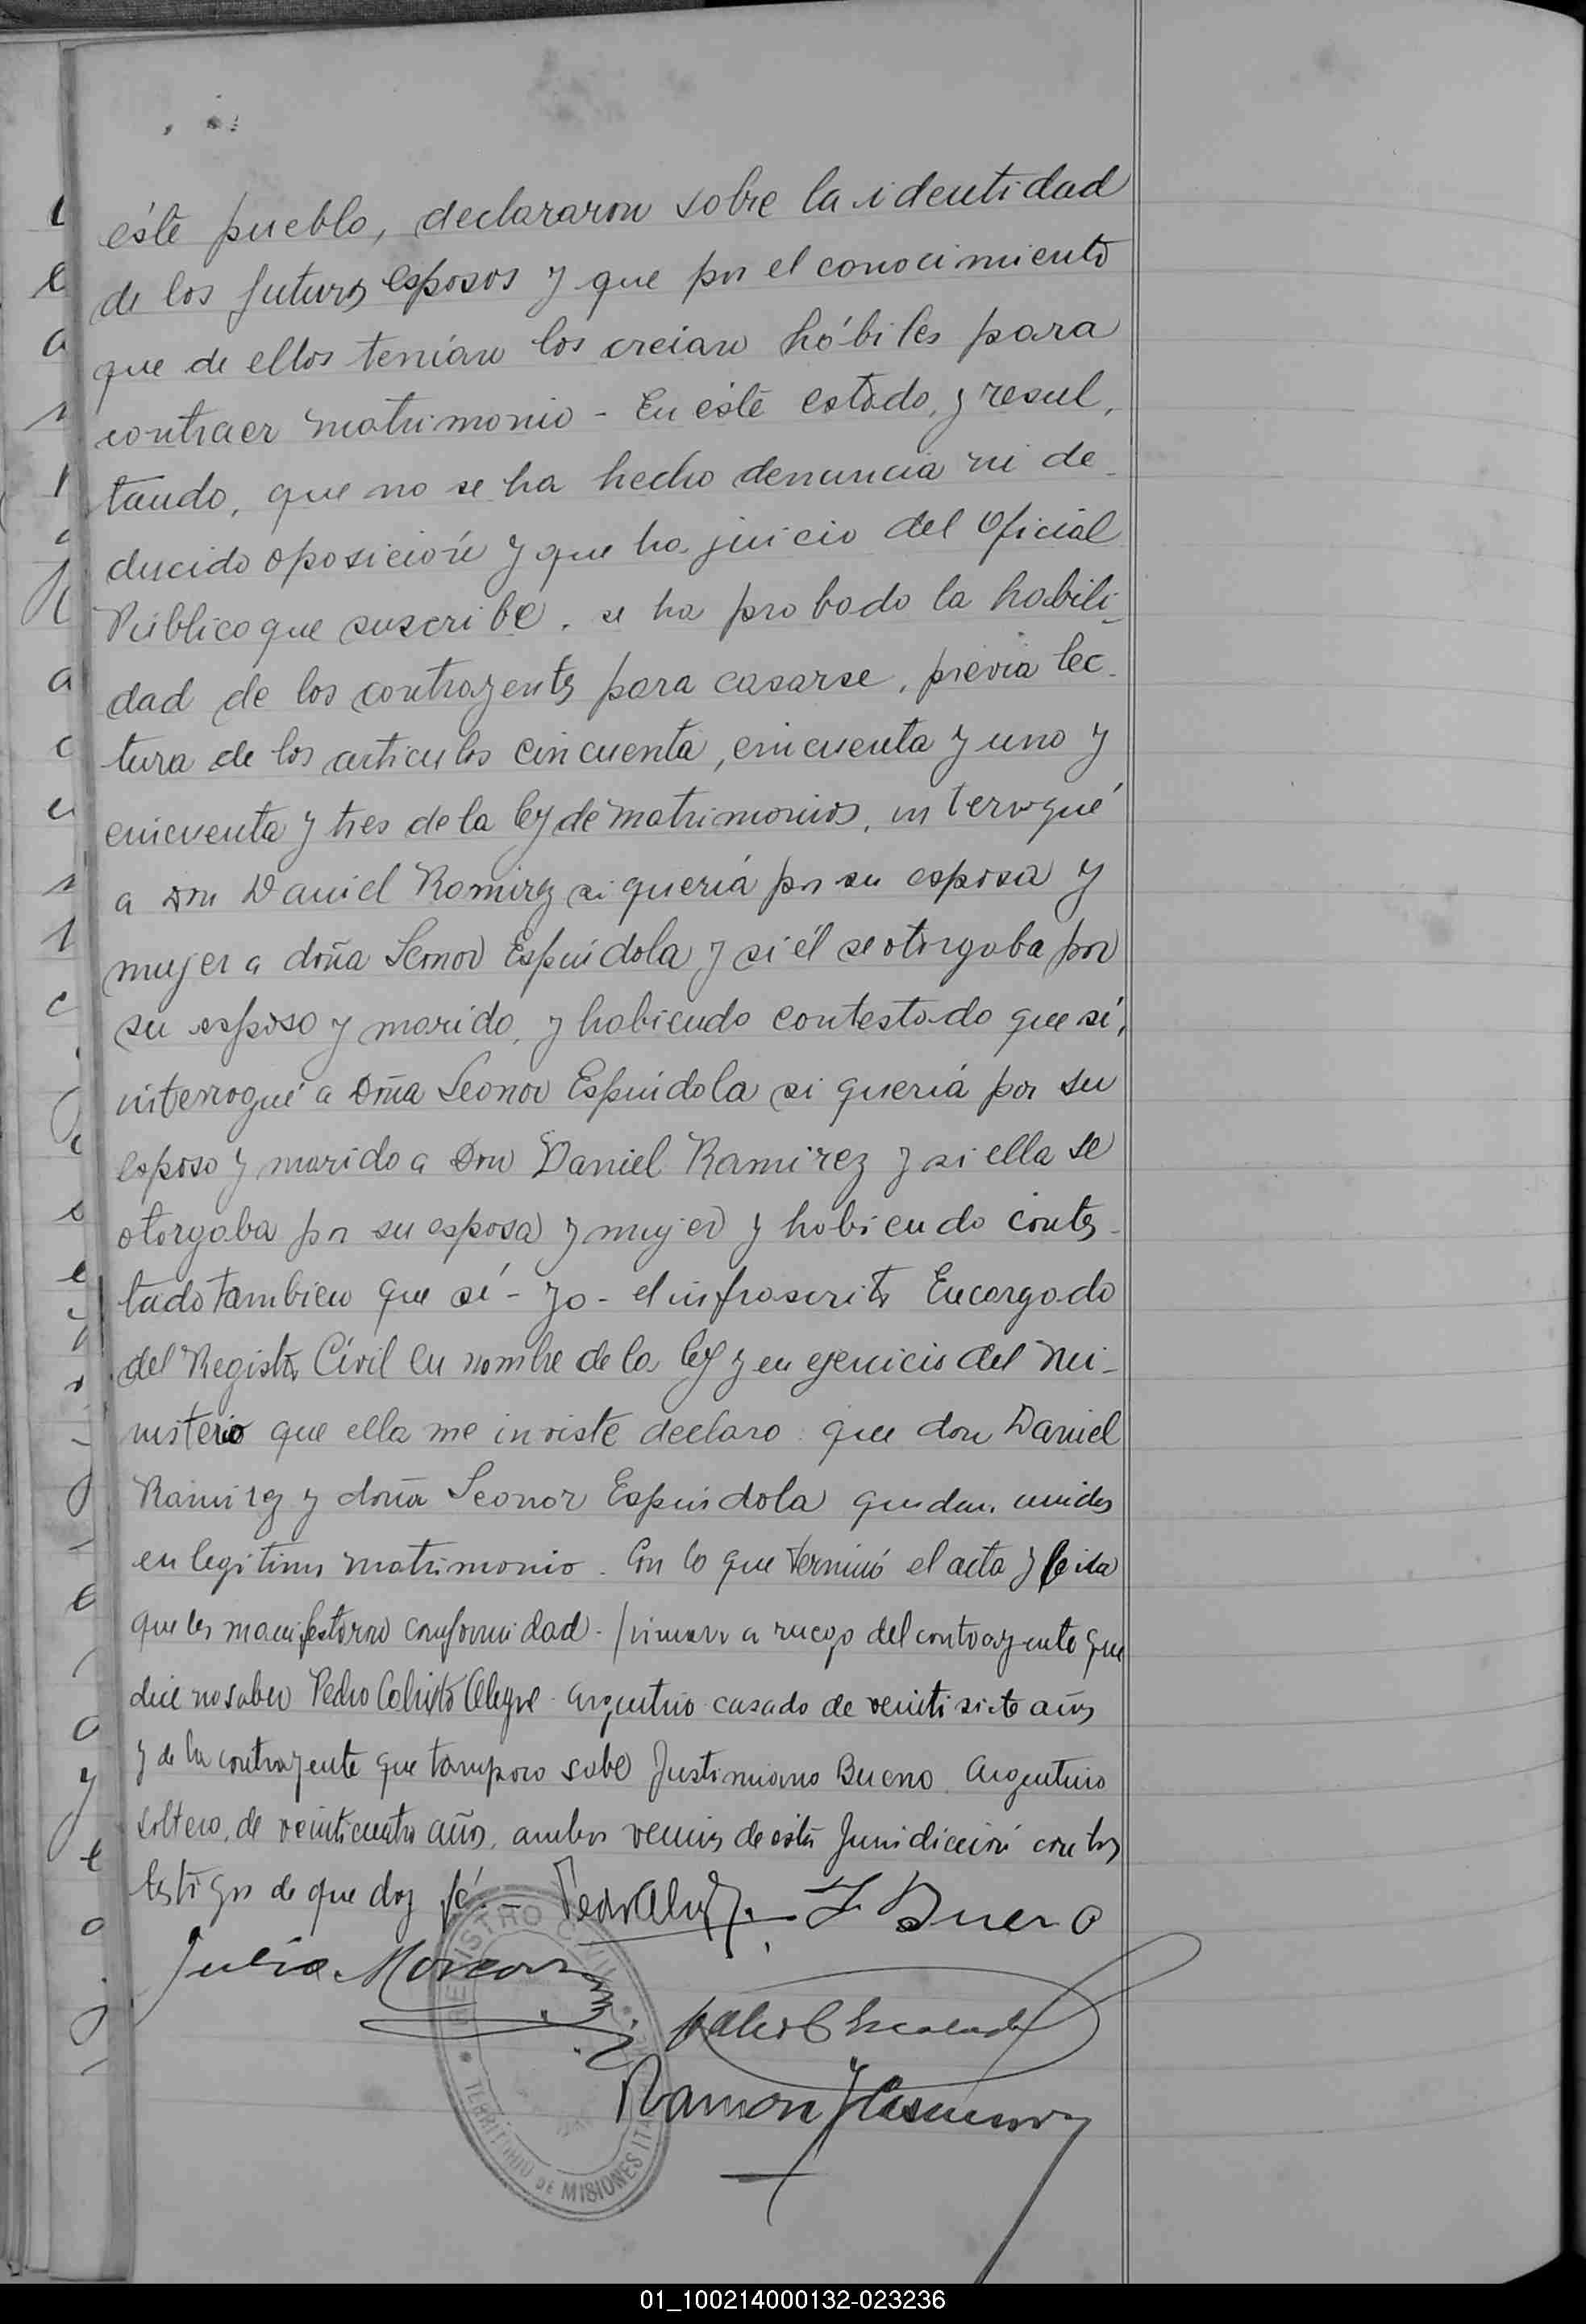 éste pueblo, declararon sobre la identidad
de los futuros esposos y que por el conocimiento
que de ellos tenían los creian hábiles para
contraer matrimonio - En éste estado, y resul,
tando, que no se ha hecho denuncia ni de-
ducido oposición y que ha juicio del Oficial
Público que suscribe, se ha probado la habili-
dad de los contrayentes para casarse, previa lec-
tura de los articulos cincuenta, cincuenta y uno y
cincuenta y tres de la ley de matrimonios, interrogué
a Don Daniel Ramirez si quería por su esposa y
mujer a doña Leonor Espindola y si él se otorgaba por
su esposo y marido, y habiendo contestado que sí,
interrogué a Dña Leonor Espíndola si quería por su
esposo y marido a Don Daniel Ramirez y si ella se
otorgaba por su esposa y mujer y habiendo contes-
tado tambien que sí - yo - el infrascrito Encargado
del Registro Civil en nombre de la ley y en ejercicio del mi-
nisterio que ella me inviste declaro: que don Daniel
Ramirez y doña Leonor Espindola quedan unidos
en legitimo matrimonio. Con lo que terminó el acta y leida
que les manifestaron conformidad - firmaron a ruego del contrayente que
dice no saber Pedro Calixto Alegre - argentino casado de veinti siete años
y de la contrayente que tampoco sabe Justiniano Bueno. Argentino
soltero, de veinticuatro años, ambos vecinos de esta Jurisdicción con los
testigos de que doy fé. - J Bueno
Julio
Ramon
REGISTRO CIVIL
TERRITORIO DE MISIONES
01_100214000132-023236